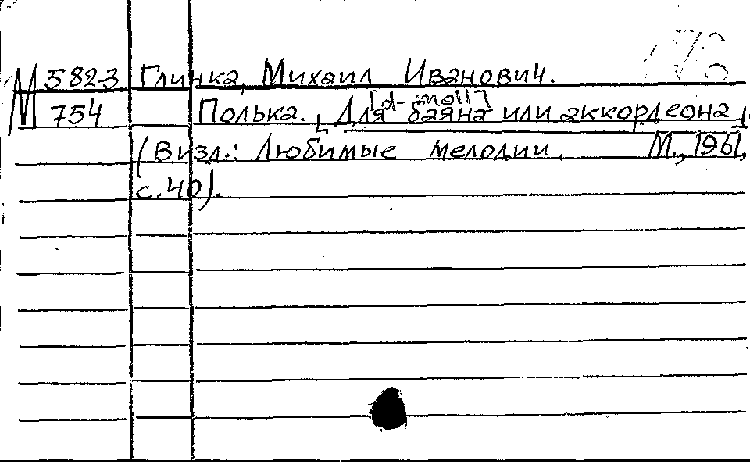 М 5823 Глинка, Михаил Иванович.
М 754 Полька. [d-moll]
[Для баяна или аккордеона].
(В изд.: Любимые мелодии. М., 1961,
с. 40).